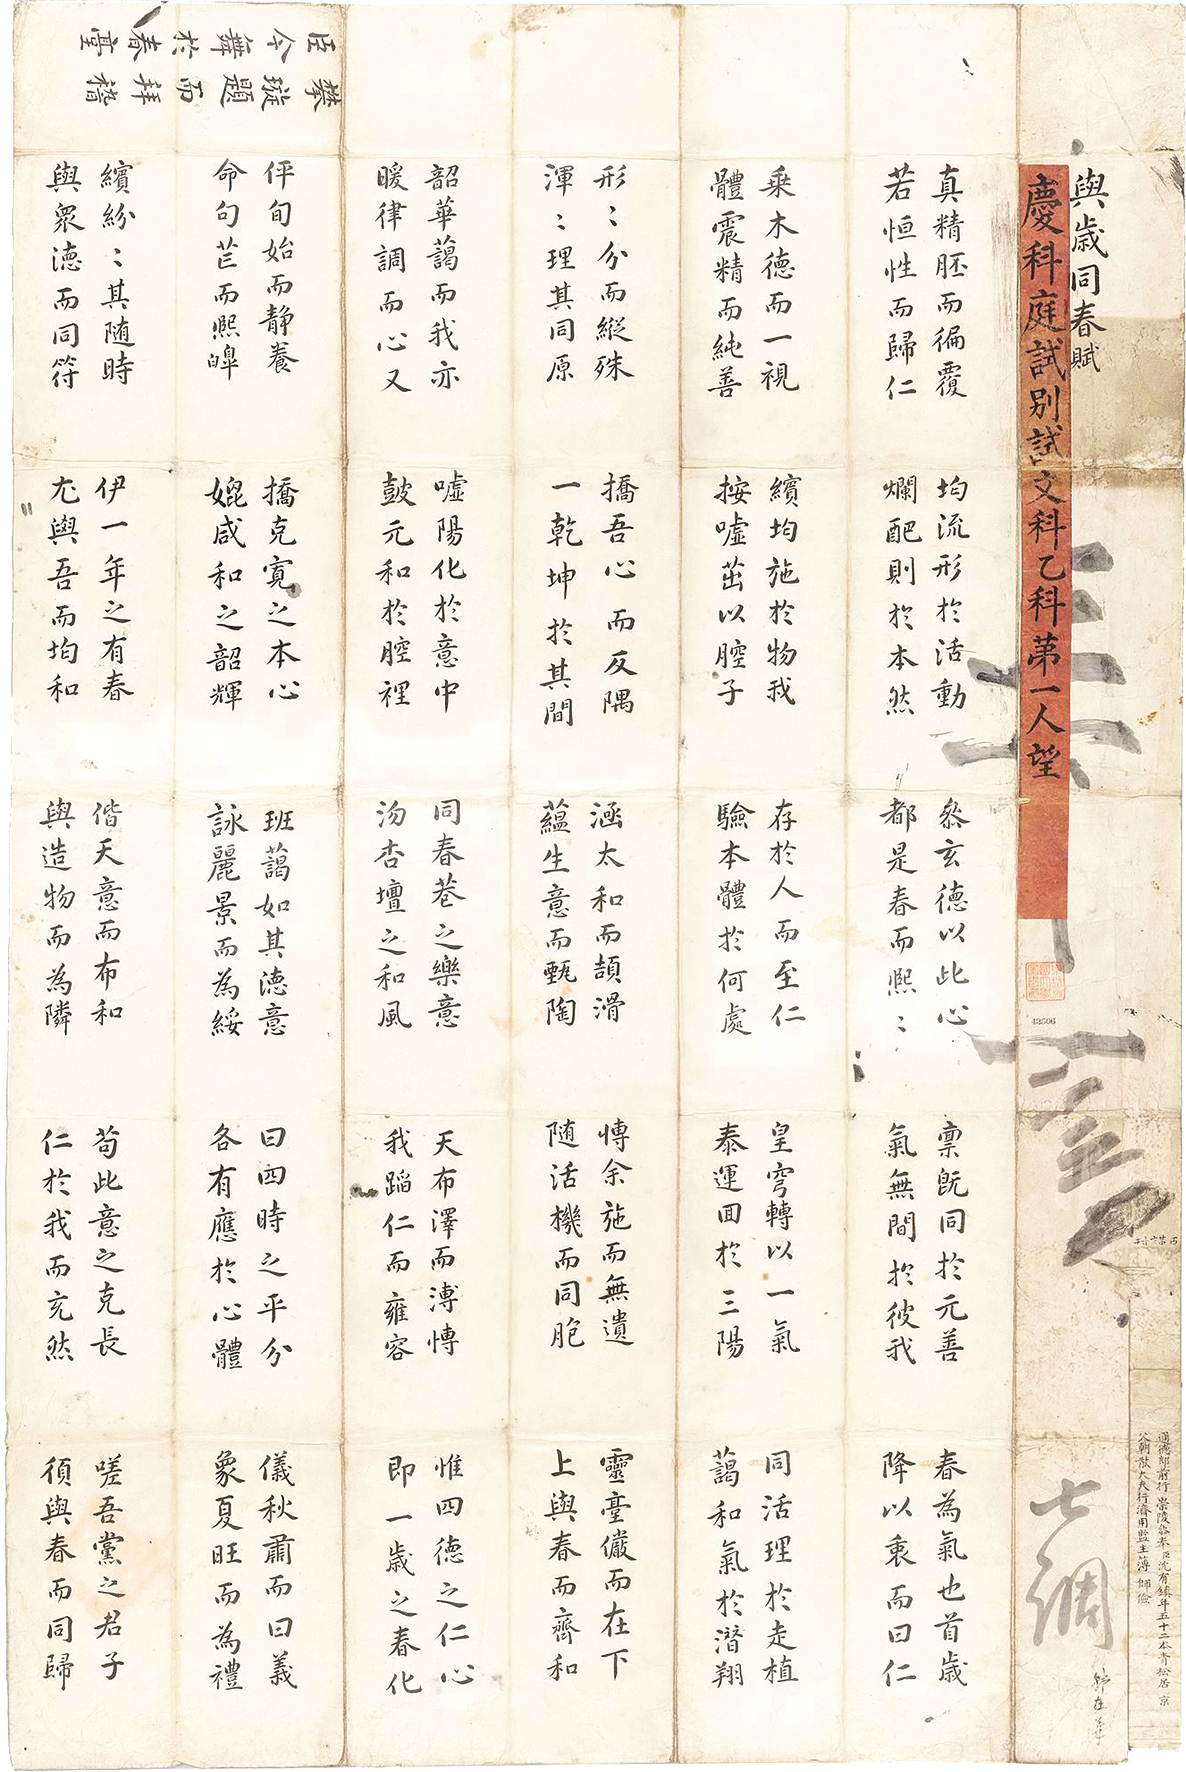 通德郎前行 崇陵參奉臣沈有鎮年五十二本青松居京
父朝散大夫行濟用監主簿 師儉
與歲同春賦
慶科庭試別試文科乙科第一人望
43506
真精胚而徧覆
若恒性而歸仁
均流形於活動
爛配則於本然
叅玄德以此心
都是春而熙〻
稟既同於元善
氣無間於彼我
春為氣也首歲
降以衷而曰仁
乗木德而一視
體震精而純善
繽均施於物我
按噓茁以腔子
存於人而至仁
驗本體於何處
皇穹轉以一氣
泰運回於三陽
同活理於走植
藹和氣於潛翔
形〻分而縱殊
渾〻理其同原
撟吾心而反隅
一乾坤於其間
涵太和而頡滑
蘊生意而甄陶
慱余施而無遺
随活機而同胞
靈臺儼而在下
上與春而齊和
韶華藹而我亦
暖律調而心又
噓陽化於意中
皷元和於腔裡
同春巷之樂意
沕杏壇之和風
天布澤而溥慱
我蹈仁而雍容
惟四德之仁心
即一歲之春化
伻旬始而静養
命句芒而熙皥
撟克寬之本心
媲咸和之韶輝
班藹如其德意
詠麗景而為綏
曰四時之平分
各有應於心體
儀秋肅而曰義
象夏旺而為禮
繽紛〻其随時
與衆德而同符
伊一年之有春
尤與吾而均和
偕天意而布和
與造物而為隣
苟此意之克長
仁於我而充然
嗟吾黨之君子
須與春而同歸
臣今舞於春臺
攀璇題而拜稽